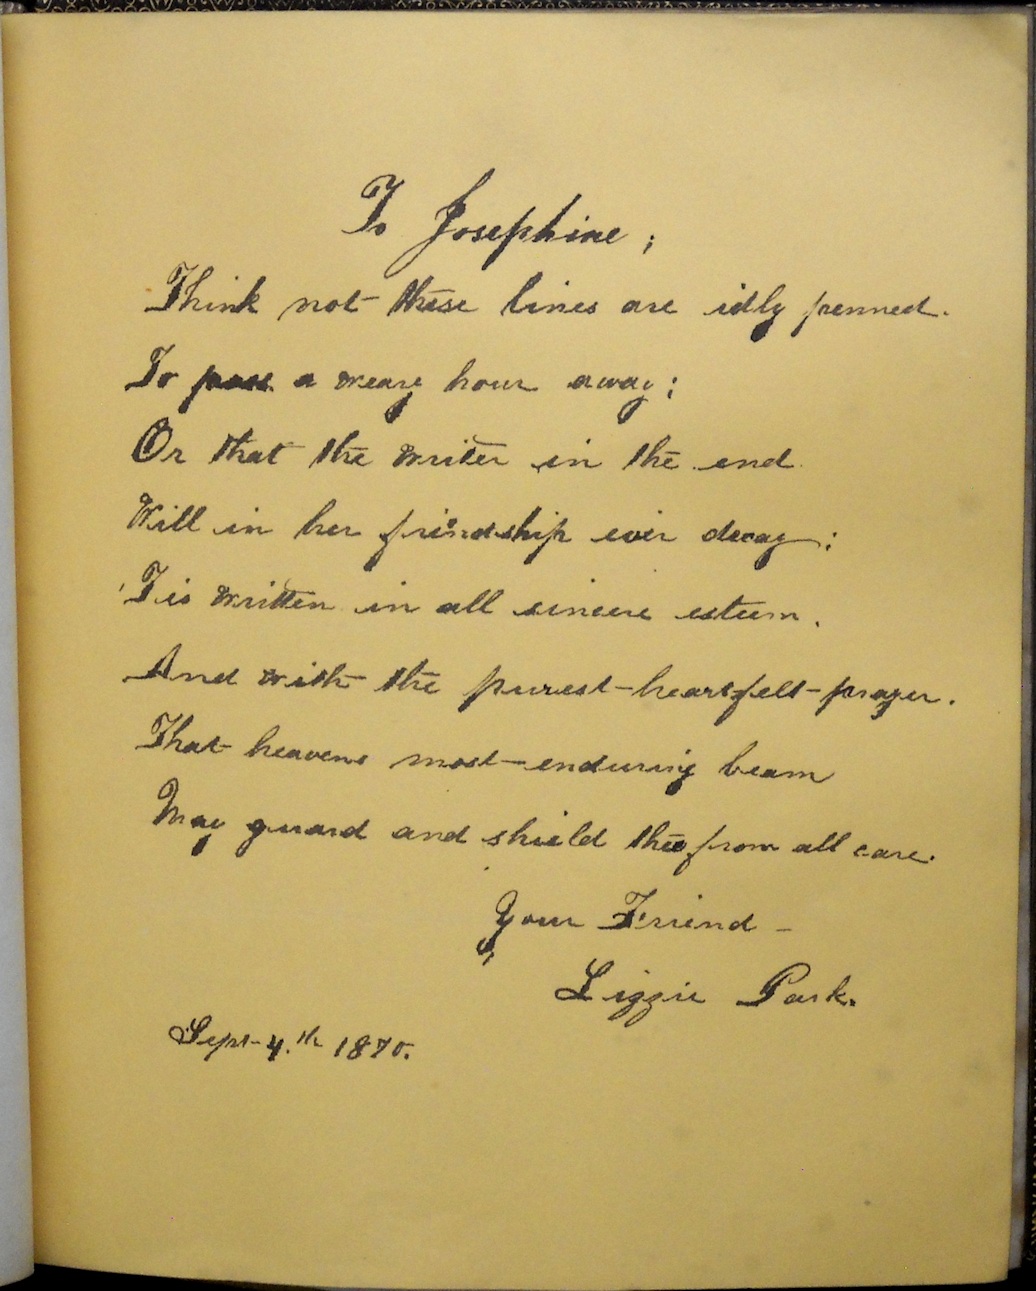 To Josephine;
Think not these lines are idly penned.
To pass a weary hour away;
Or that the writer in the end
Will in her friendship ever decay;
'Tis written in all sincere esteem.
And with the purest heartfelt prayer.
That heavens most enduring beam
May guard and shield thee from all care.
Your Friend –
Lizzie Park.
Sept 4.th 1870.